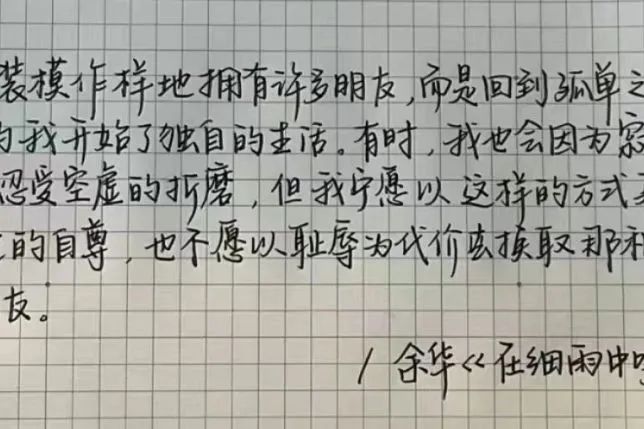 装模作样地拥有许多朋友,而是回到孤单之
我开始了独自的生活。有时,我也会因为
忍受空虚的折磨,但我宁愿以这样的方式
的自尊,也不愿以耻辱为代价去换取那
友。
/ 余华《在细雨中